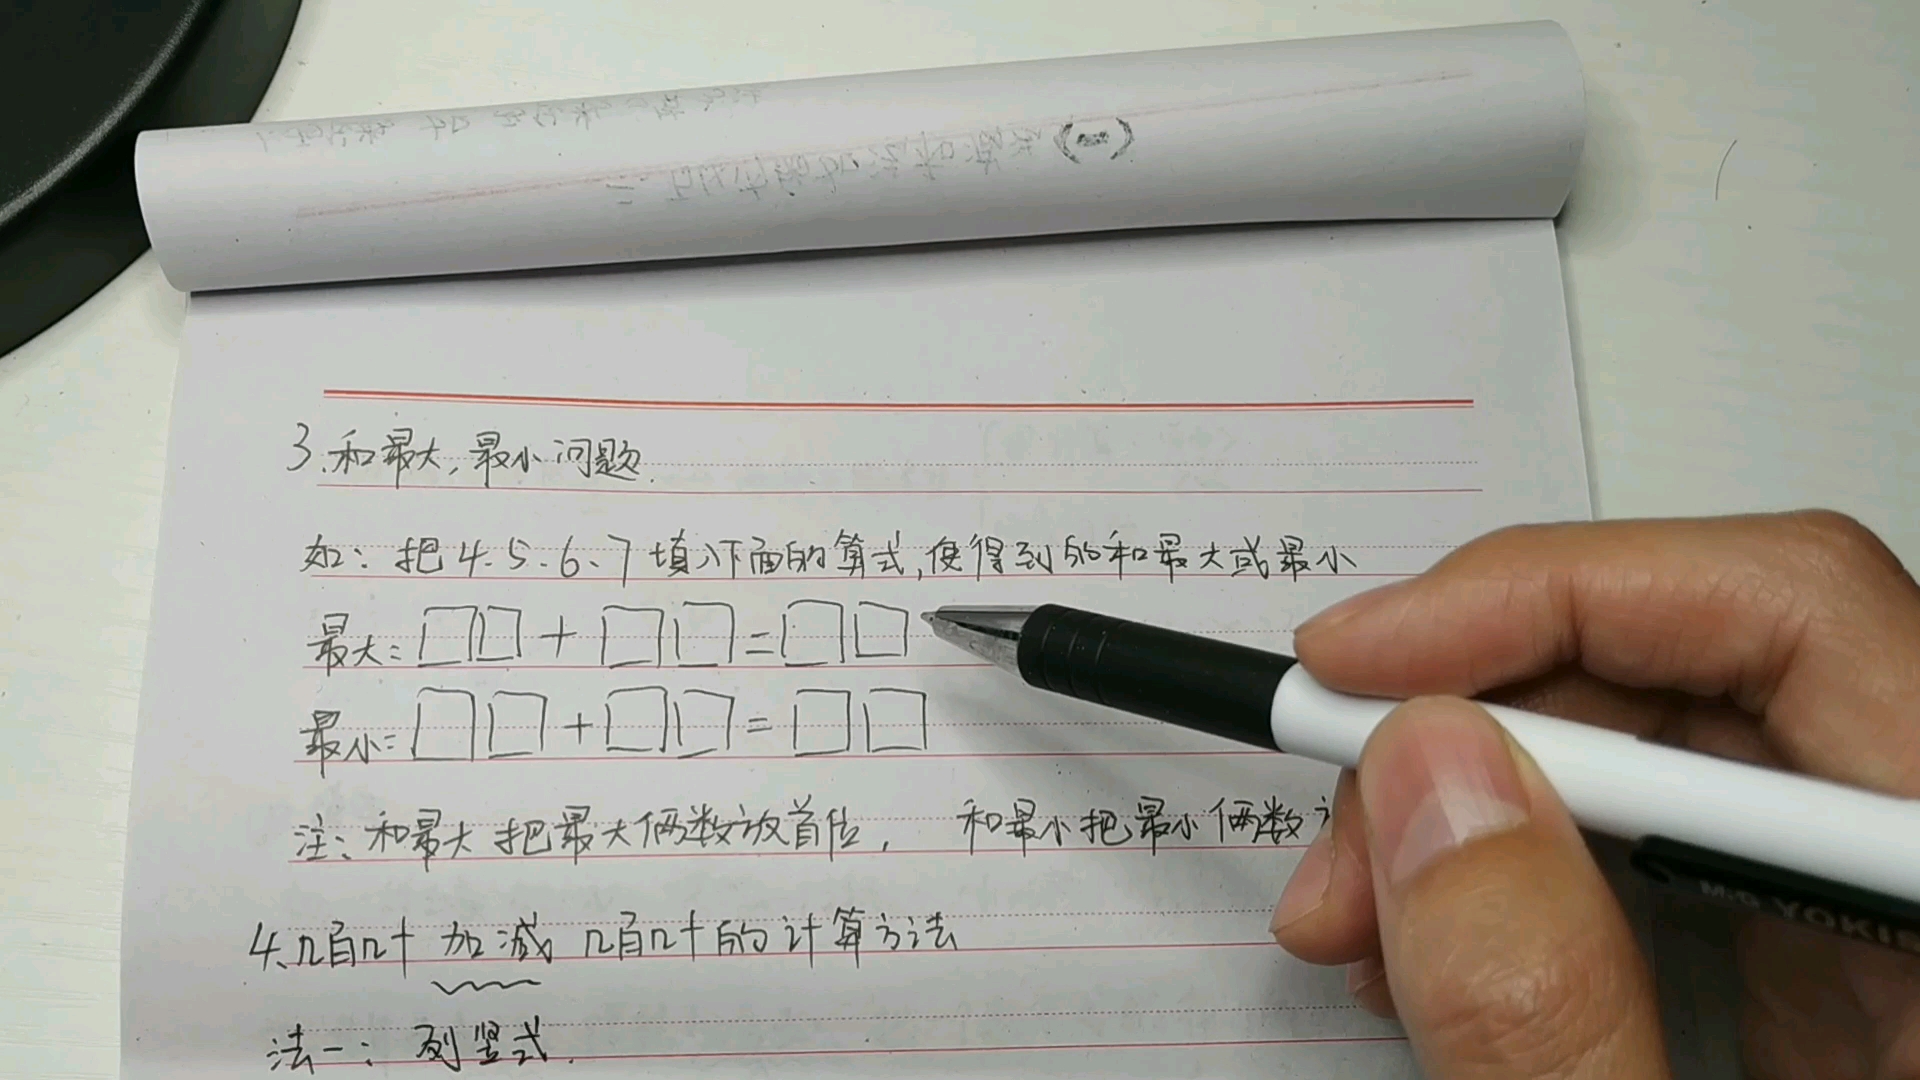 3.和最大,最小问题.
如：把4.5.6、7填入下面的算式,使得到的和最大或最小
最大：□□+□□=□□
最小：□□+□□=□□
注：和最大把最大俩数放首位， 和最小把最小俩数
4、几百几十加减几百几十的计算方法
法一：列竖式.
M&G YOKIS